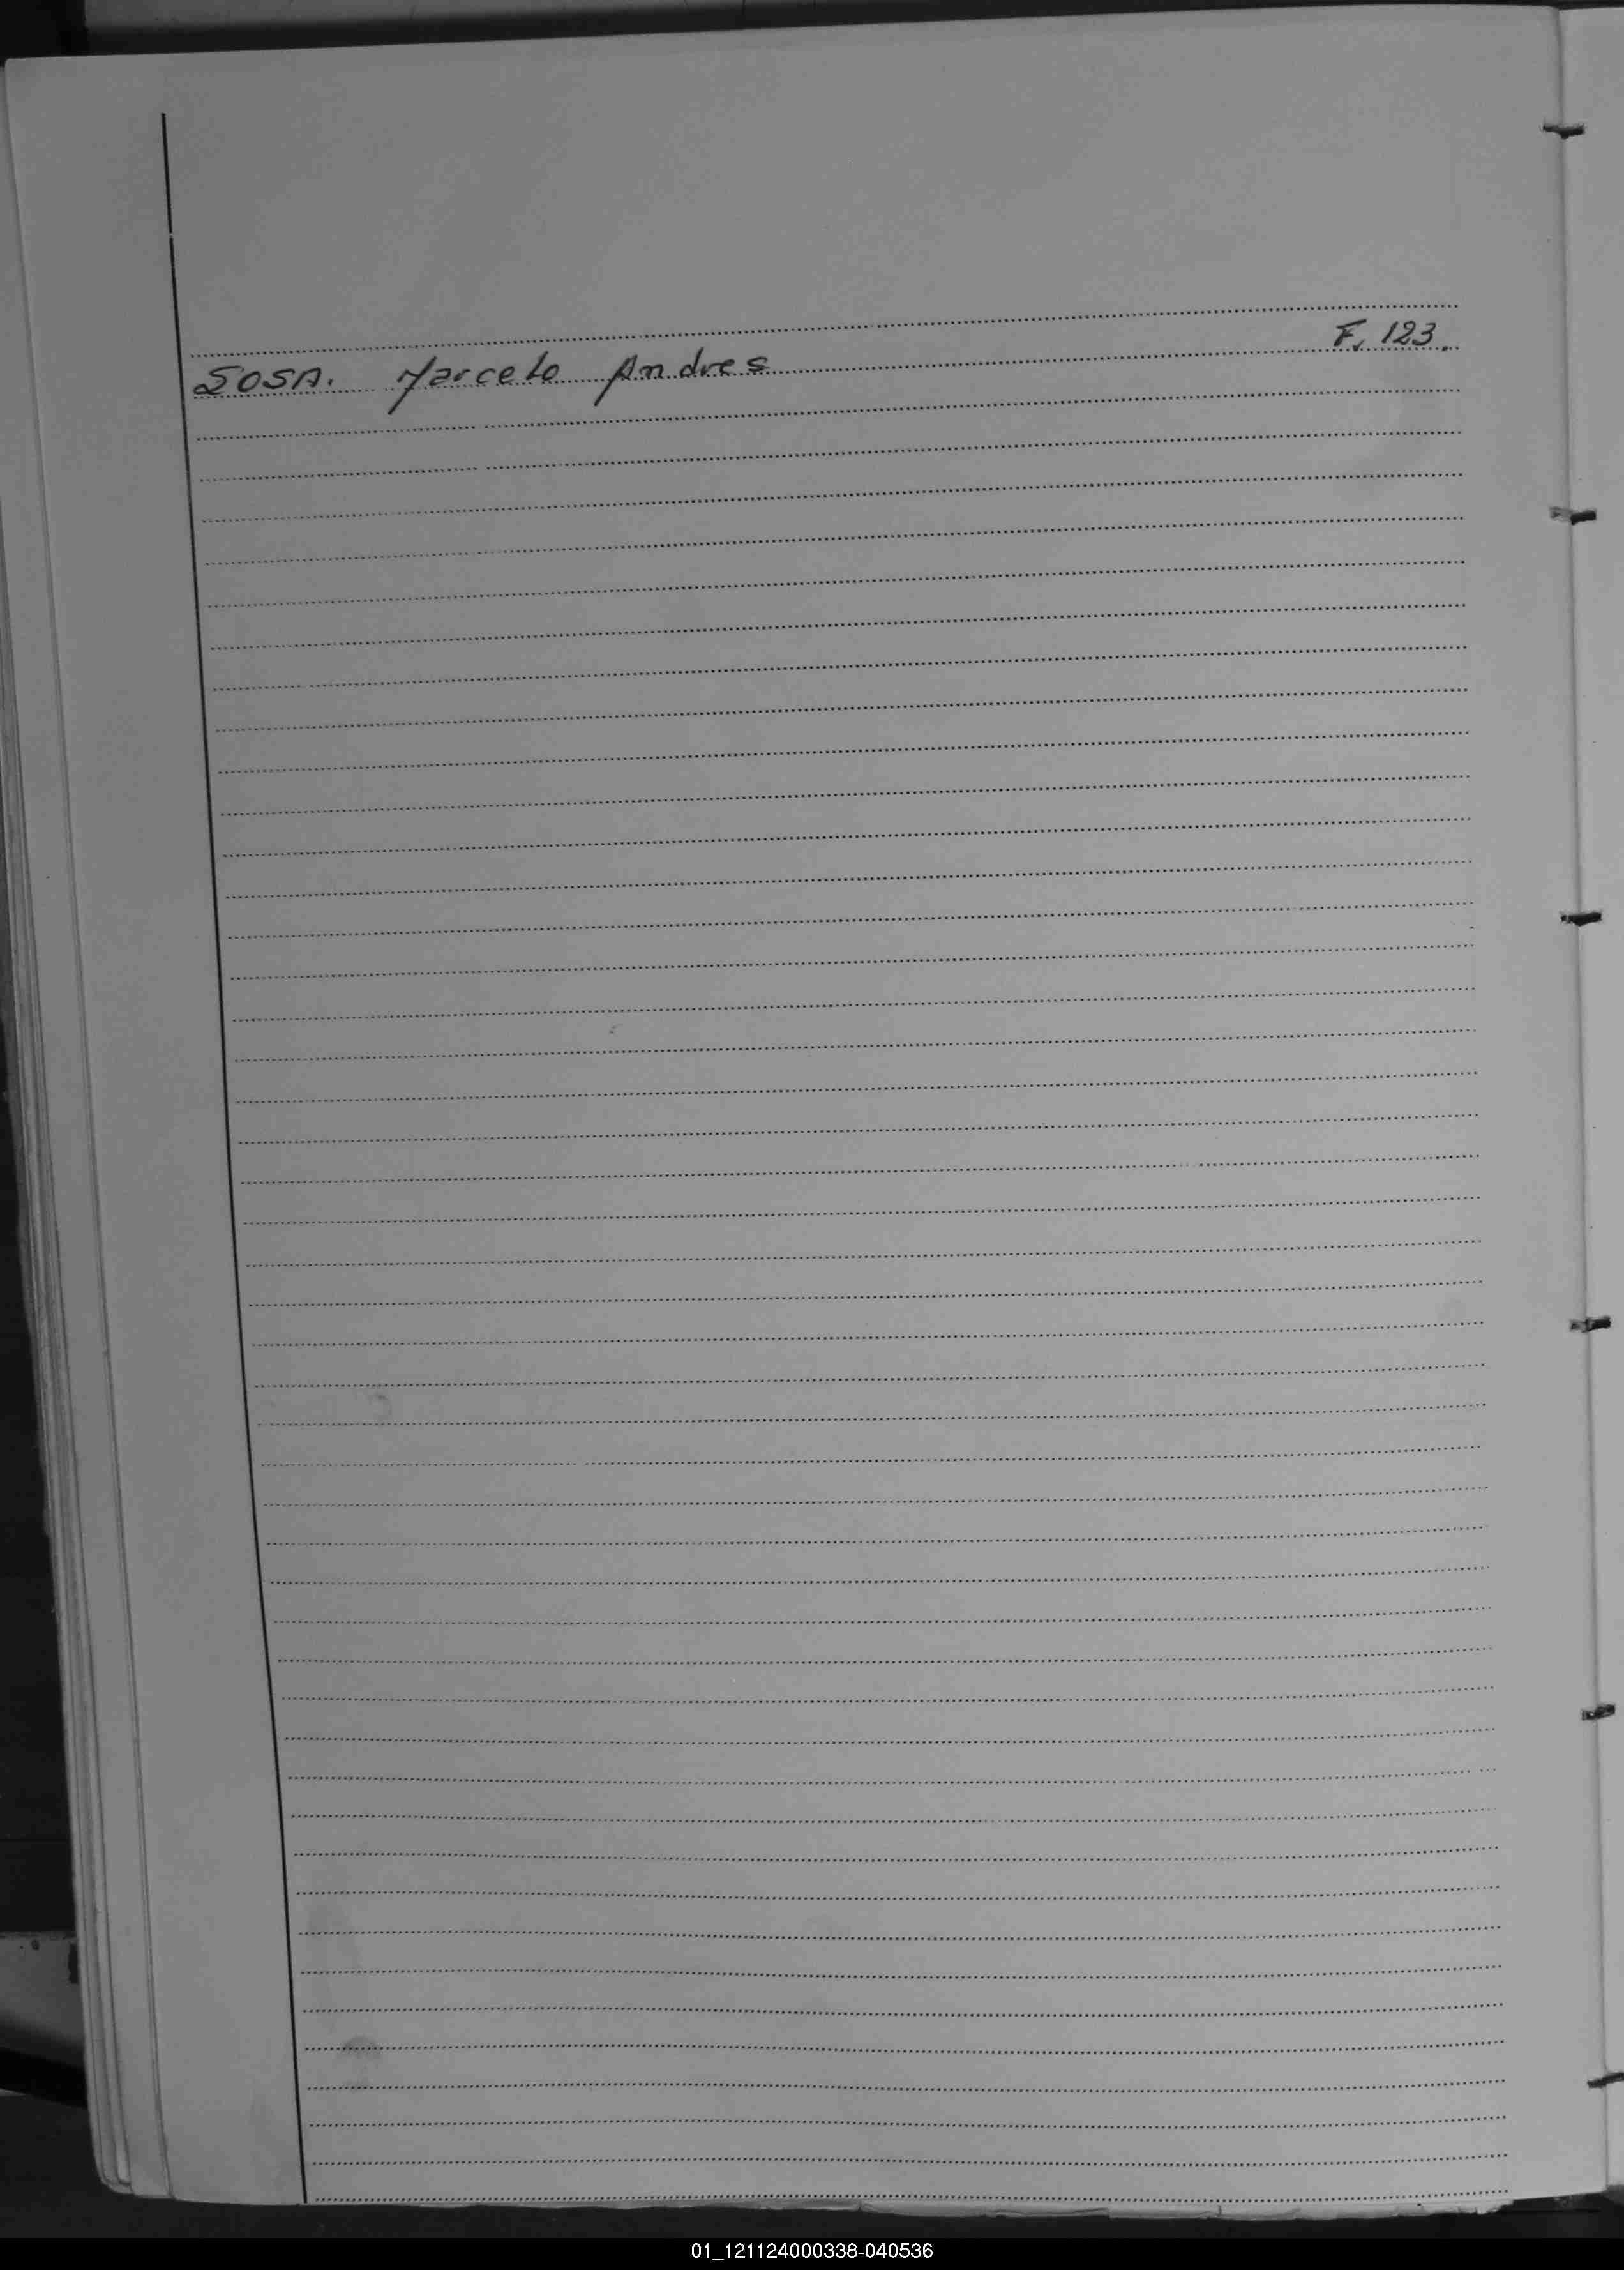 SOSA. Marcelo Andres F. 123.
01_121124000338-040536